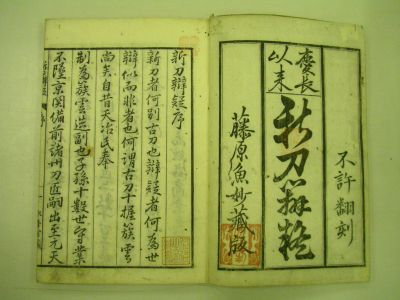 不許翻刻
慶長
以来
新刀辨疑
藤原魚妙蔵版
新刀辨疑序
新刀者何別古刀也辨疑者何為世
辯似而非者也何謂古刀十握簇雲
尚矣自昔天冶氏奉
制為簇雲造副也子孫十数世守業
不墜京関備前諸州刀匠嗣出至元天